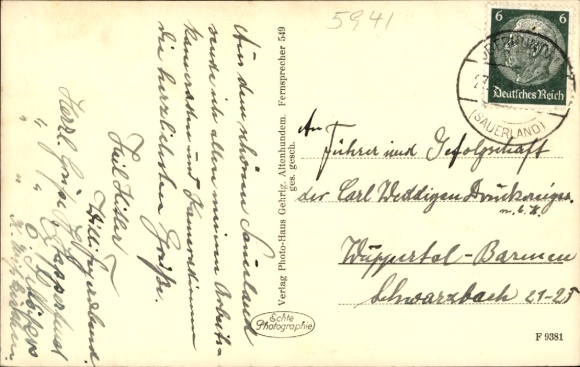 5941
Aus dem schönen Sauerland
sende ich allen meinen Arbeits-
kameraden und Kameradinnen
die herzlichsten Grüße.
Heil Hitler
Herzl. Grüße
Verlag Photo-Haus Gehrig, Altenhundem. Fernsprecher 549
ges. gesch.
Echte
Photographie
6 6
Deutsches Reich
(SAUERLAND)
An
Führer und Gefolgschaft
der Carl Weddigen Druckerei
m.b.H.
Wuppertal-Barmen
Schwarzbach 21-25
F 9381